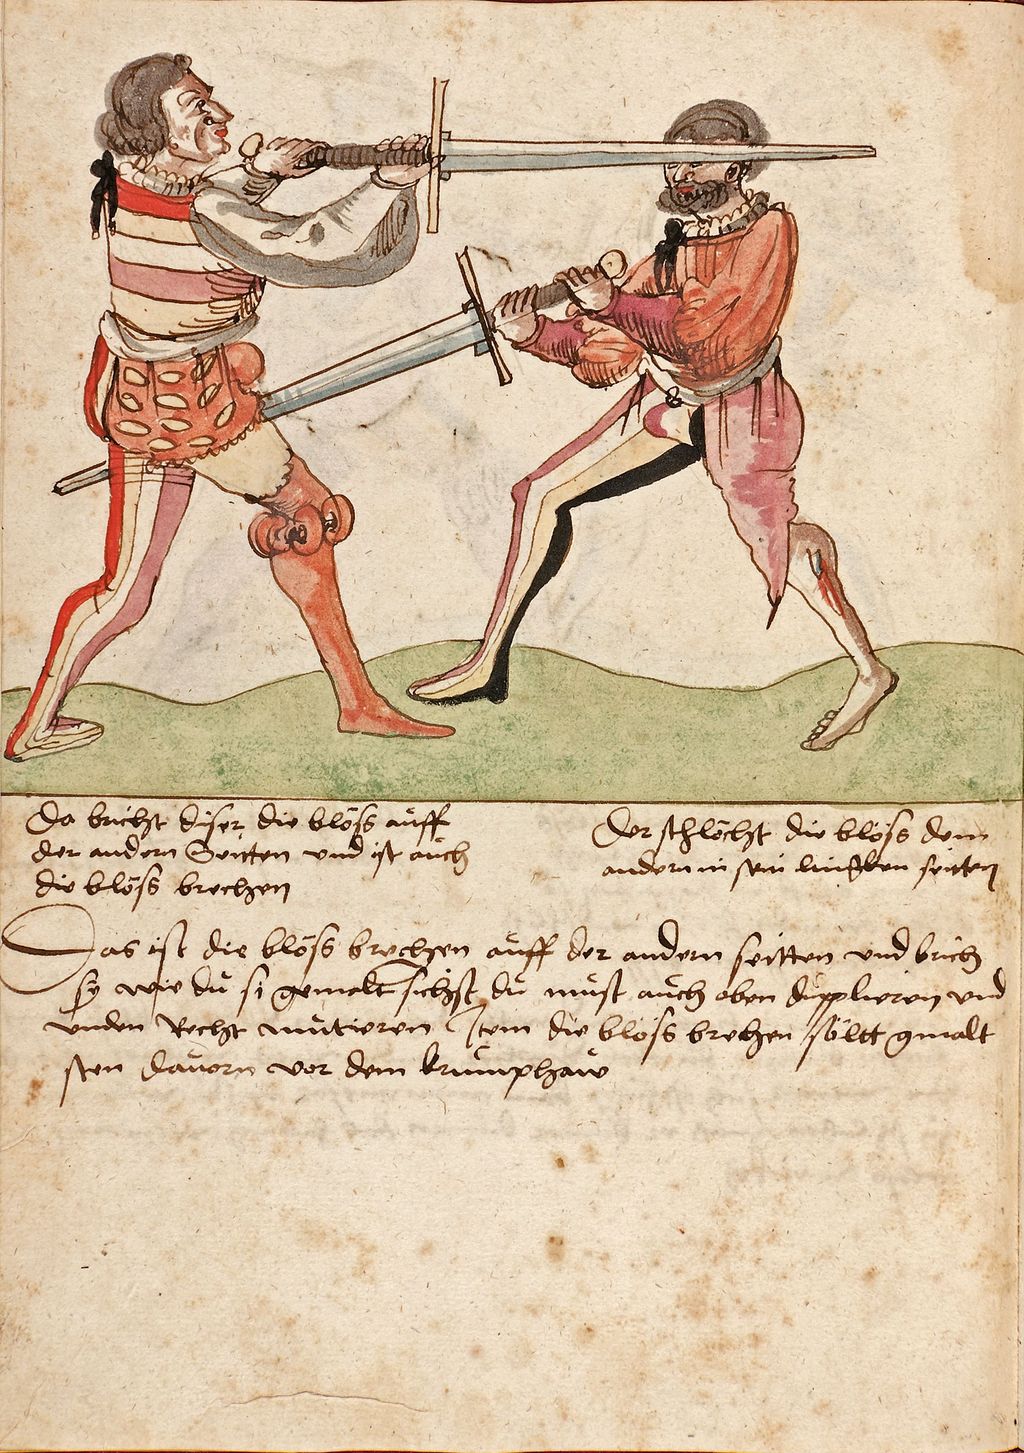 Da bricht diser die blöss auff
der andern Seitten und ist auch
die blöss brechen
Der schlöcht die blöss dem
andern in sein lingken seitten
Das ist die blöss brechen auff der andern seitten und brich
sy wie du si gemalt sichst du must auch oben dupplieren und
unden Recht mutieren Item die blöss brechen söltt gmalt
sten davorn vor dem krumphaw